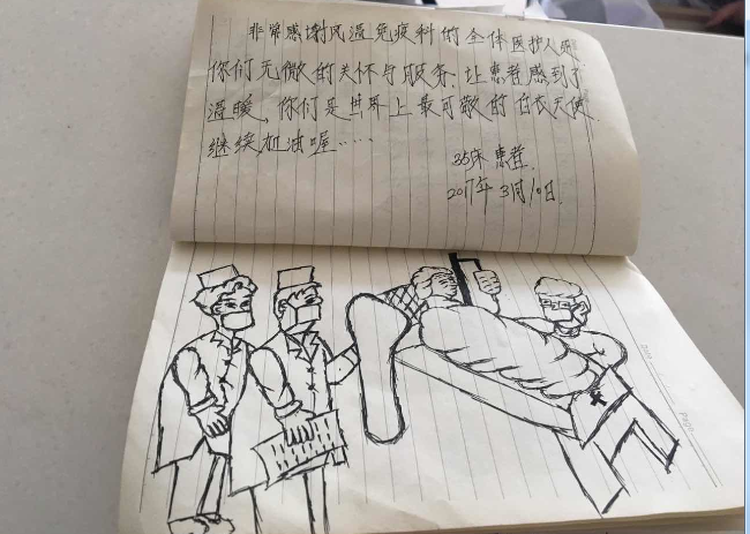 非常感谢风湿免疫科的全体医护人员
你们无微的关怀与服务.让患者感到了
温暖,你们是世界上最可敬的白衣天使.
继续加油喔.....
35床 患者.
2017年3月10日.
Date
Page